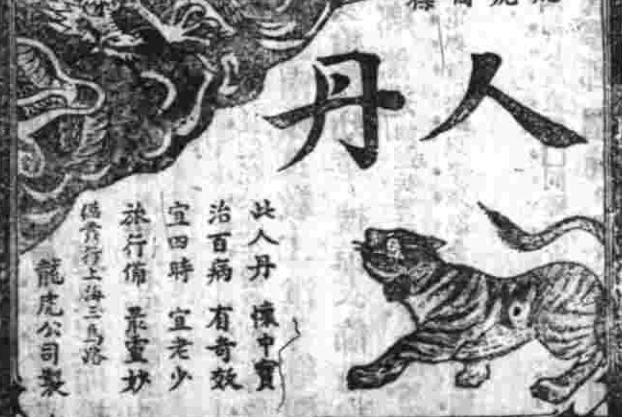 人丹
此人丹 懷中寶
治百病 有奇效
宜四時 宜老少
旅行備 最靈妙
總發行上海三馬路
龍虎公司製